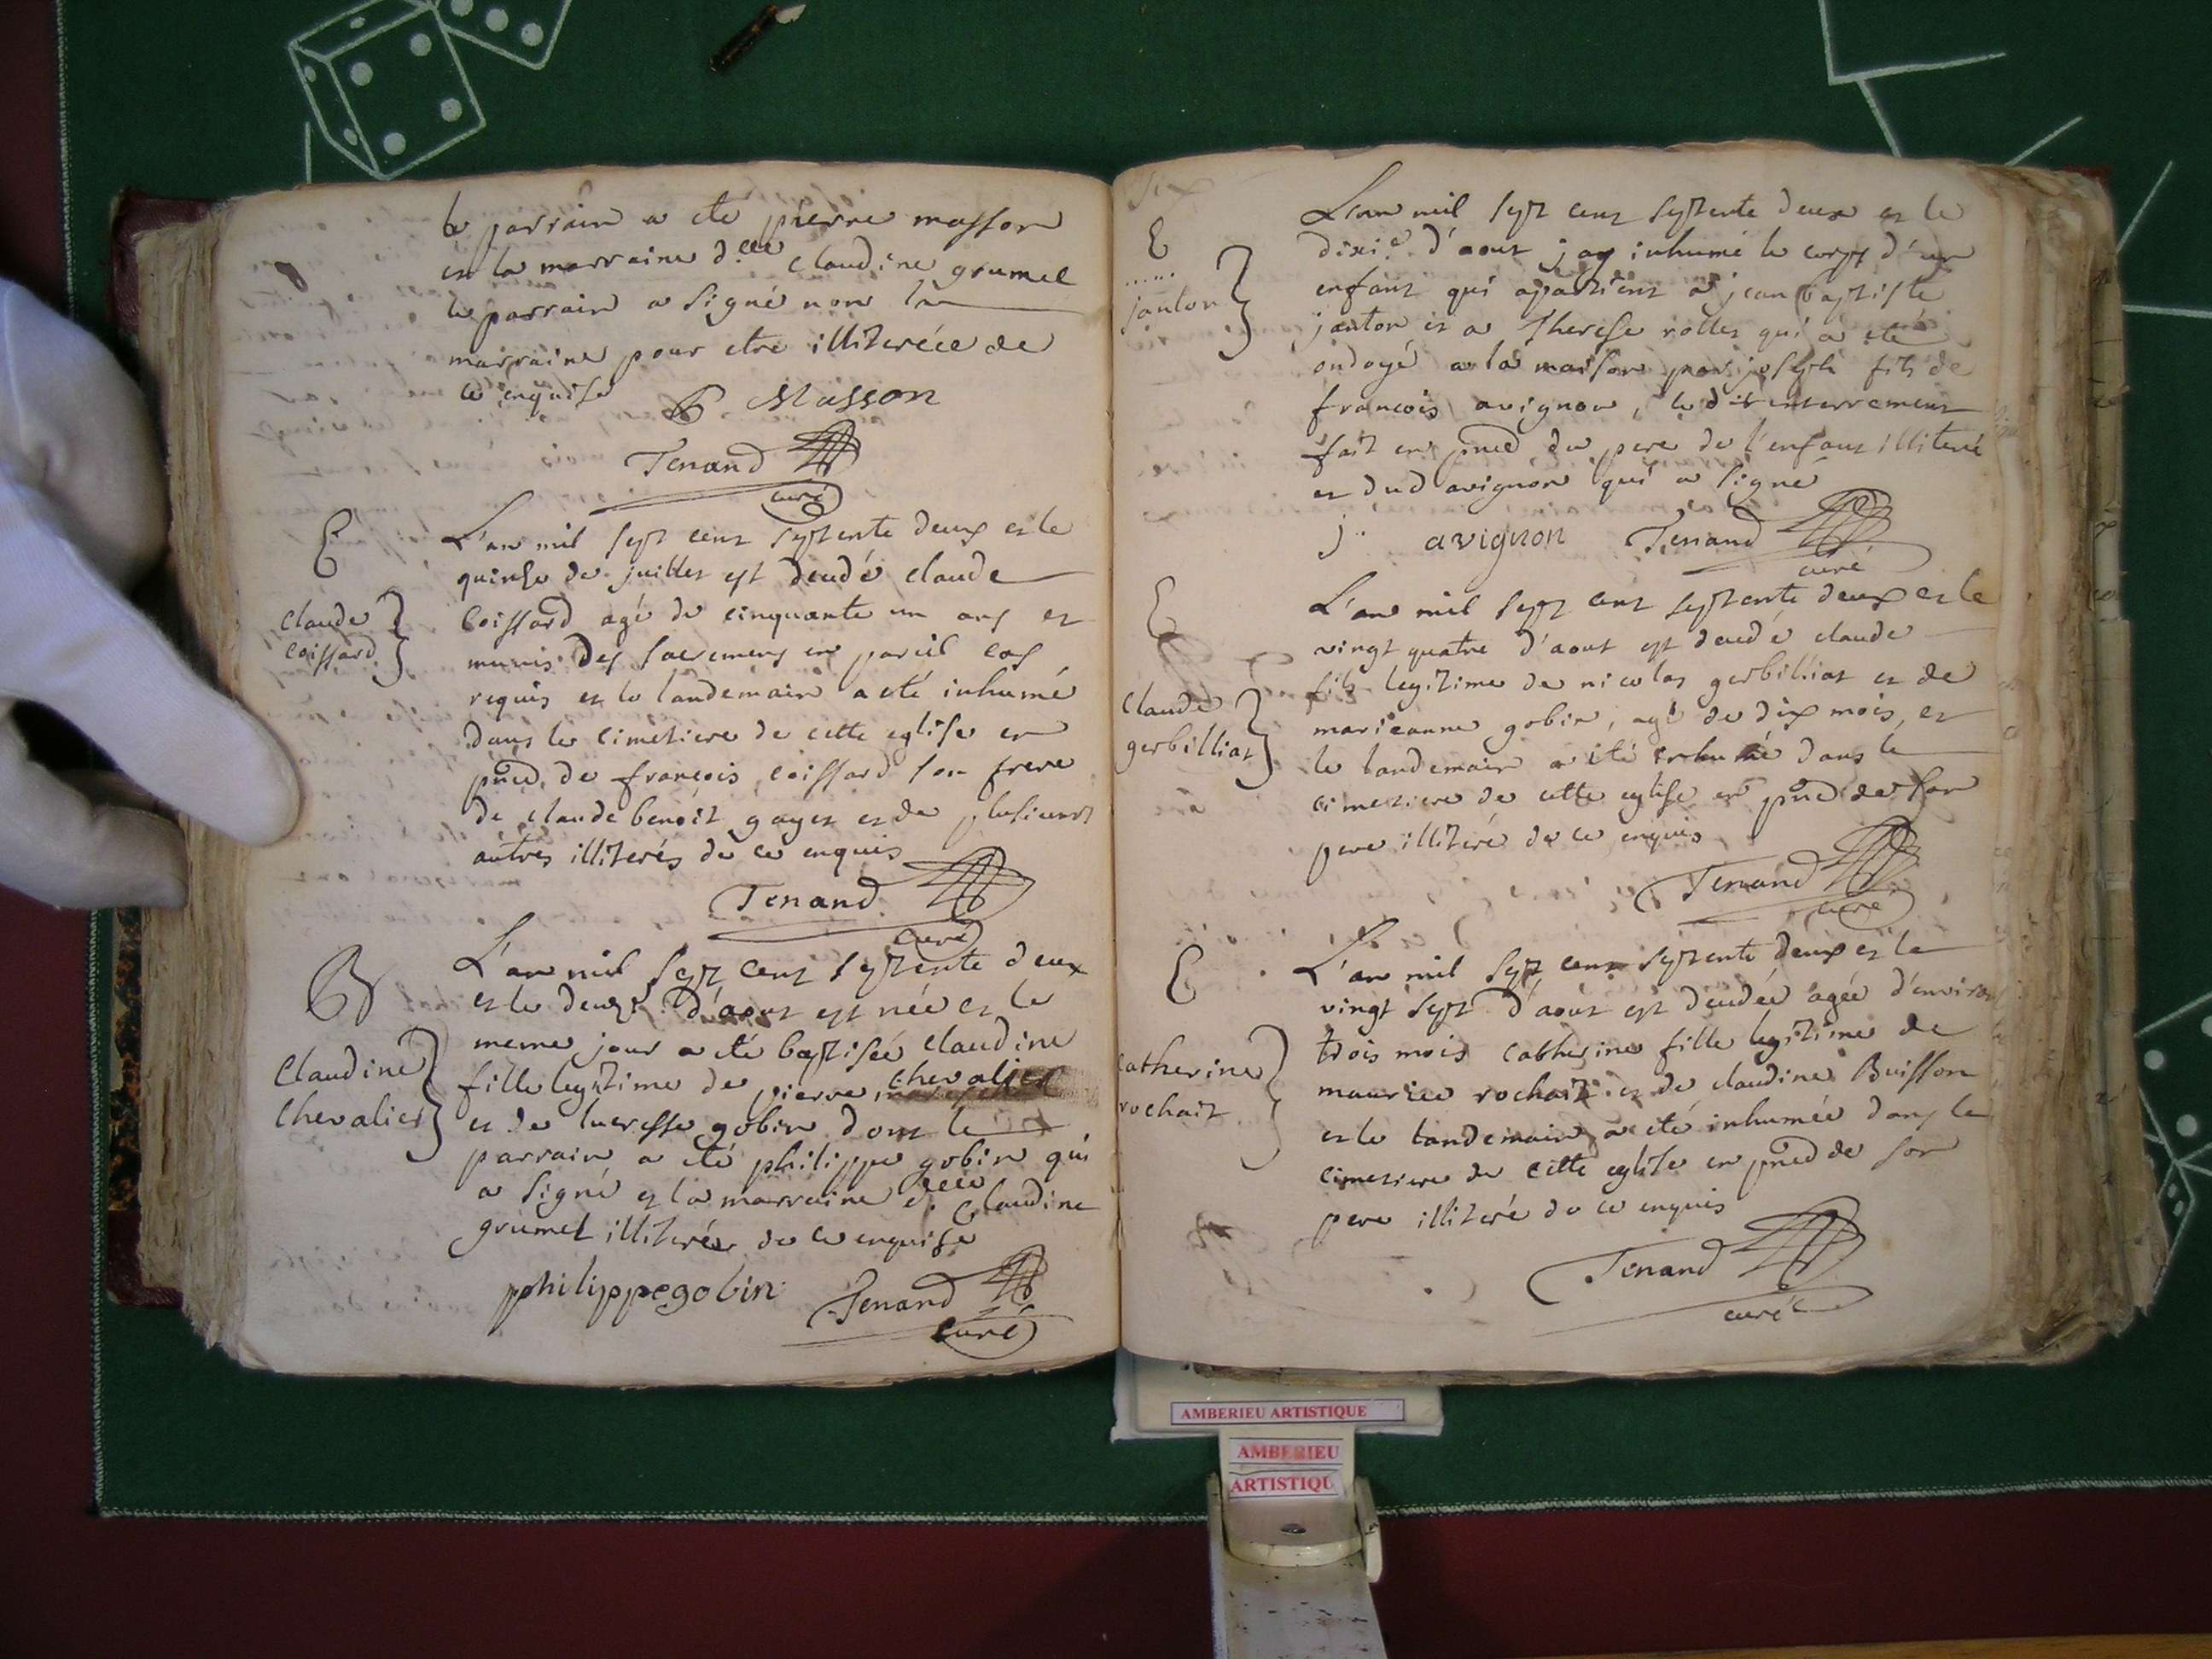 le parrain a eté pierre masson
et la marraine d.elle claudine grumel
le parrain a signé non la
marraine pour etre illiterée de
ce enquise
P Masson
Tenand
curé
E
claude
coissard
L'an mil sept cent septente deux et le
quinse de juillet est decedé claude
Coissard agé de cinquante un ans et
munis des sacremens en pareil cas
requis et le landemain a eté inhumé
dans le cimetiere de cette eglise en
pñce de françois coissard son frere
de claude benoit gayet et de plusieurs
autres illiterés de ce enquis
Tenand
curé
B
Claudine
Chevalier
L'an mil sept cent septente deux
et le deuxe. d'aout est née et le
meme jour a eté baptisée claudine
fille legitime de pierre chevalier
et de lucresse gobin dont le
parrain a eté philippe gobin qui
a signé et la marraine d.elle Claudine
grumel illiterée de ce enquise
philippe gobin
Tenand
curé
Six
E
.....
janton
L'an mil sept cent septente deux et le
dixi.e d'aout jay inhumé le corps d'un
enfant qui apartient a jean baptiste
janton et a Therese rollet qui a eté
ondoyé a la maison par joseph fils de
francois avignon, le dit enterrement
fait en pñce du pere de l'enfant illiteré
et dud avignon qui a signé
j. avignon
Tenand
curé
E
Claude
gerbilliat
L'an mil sept cent septente deux et le
vingt quatre d'aout est decedé claude
fils legitime de nicolas gerbilliat et de
marieanne gobin, agé de dix mois, et
le landemain a eté inhumé dans le
cimetiere de cette eglise en pñce de son
pere illiteré de ce enquis
Tenand
curé
E
Catherine
rochait
L'an mil sept cent septente deux et le
vingt sept d'aout est decedée agée d'environ
trois mois catherine fille legitime de
maurice rochait et de claudine Buisson
et le landemain a eté inhumée dans le
cimetiere de cette eglise en pñce de son
pere illiteré de ce enquis
Tenand
curé
AMBERIEU ARTISTIQUE
AMBERIEU
ARTISTIQU